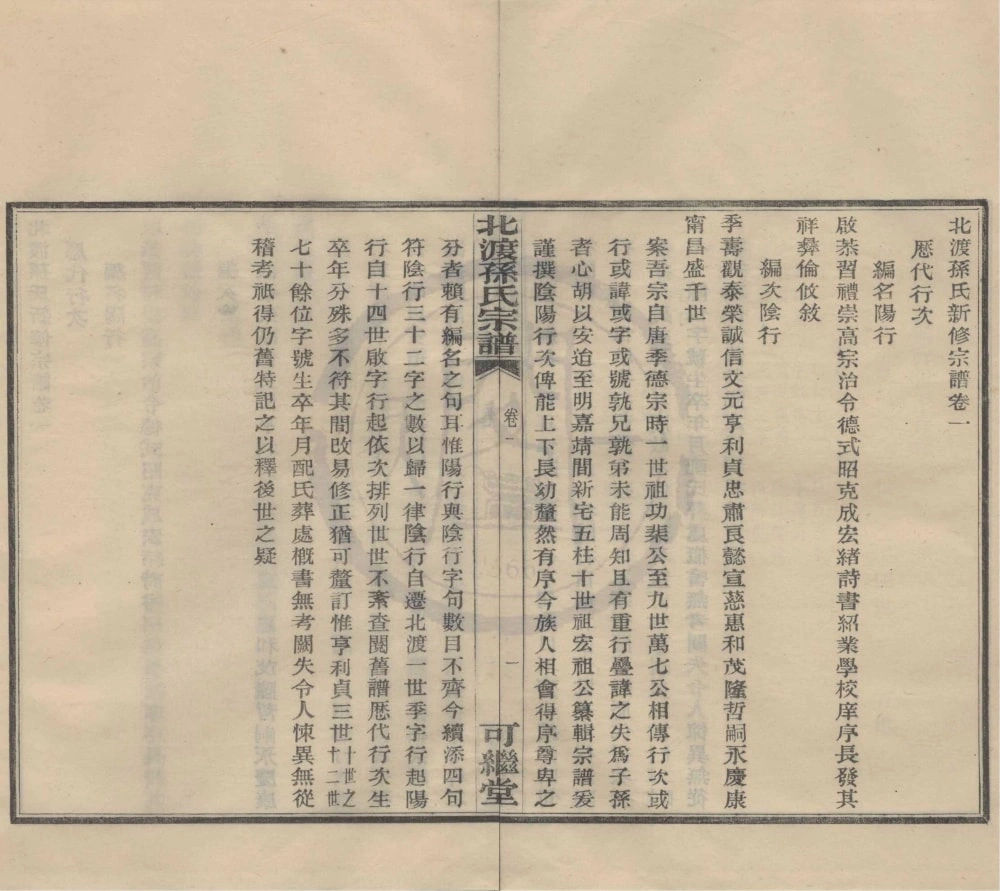 北渡孫氏新修宗譜卷一
歷代行次
編名陽行
啟恭習禮崇高宗治令德式昭克成宏緒詩書紹業學校庠序長發其
祥彝倫攸敘
編次陰行
季壽觀泰榮誠信文元亨利貞忠肅良懿宣慈惠和茂隆哲嗣永慶康
甯昌盛千世
案吾宗自唐季德宗時一世祖功裴公至九世萬七公相傳行次或
行或諱或字或號孰兄孰弟未能周知且有重行疊諱之失爲子孫
者心胡以安迨至明嘉靖間新宅五柱十世祖宏祖公纂輯宗譜爰
謹撰陰陽行次俾能上下長幼釐然有序今族人相會得序尊卑之
北渡孫氏宗譜
卷一
一
可繼堂
分者賴有編名之句耳惟陽行與陰行字句數目不齊今續添四句
符陰行三十二字之數以歸一律陰行自遷北渡一世季字行起陽
行自十四世啟字行起依次排列世世不紊查閱舊譜歷代行次生
卒年分殊多不符其間改易修正猶可釐訂惟亨利貞三世十世之十二世
七十餘位字號生卒年月配氏葬處概書無考闕失令人悚異無從
稽考祇得仍舊特記之以釋後世之疑